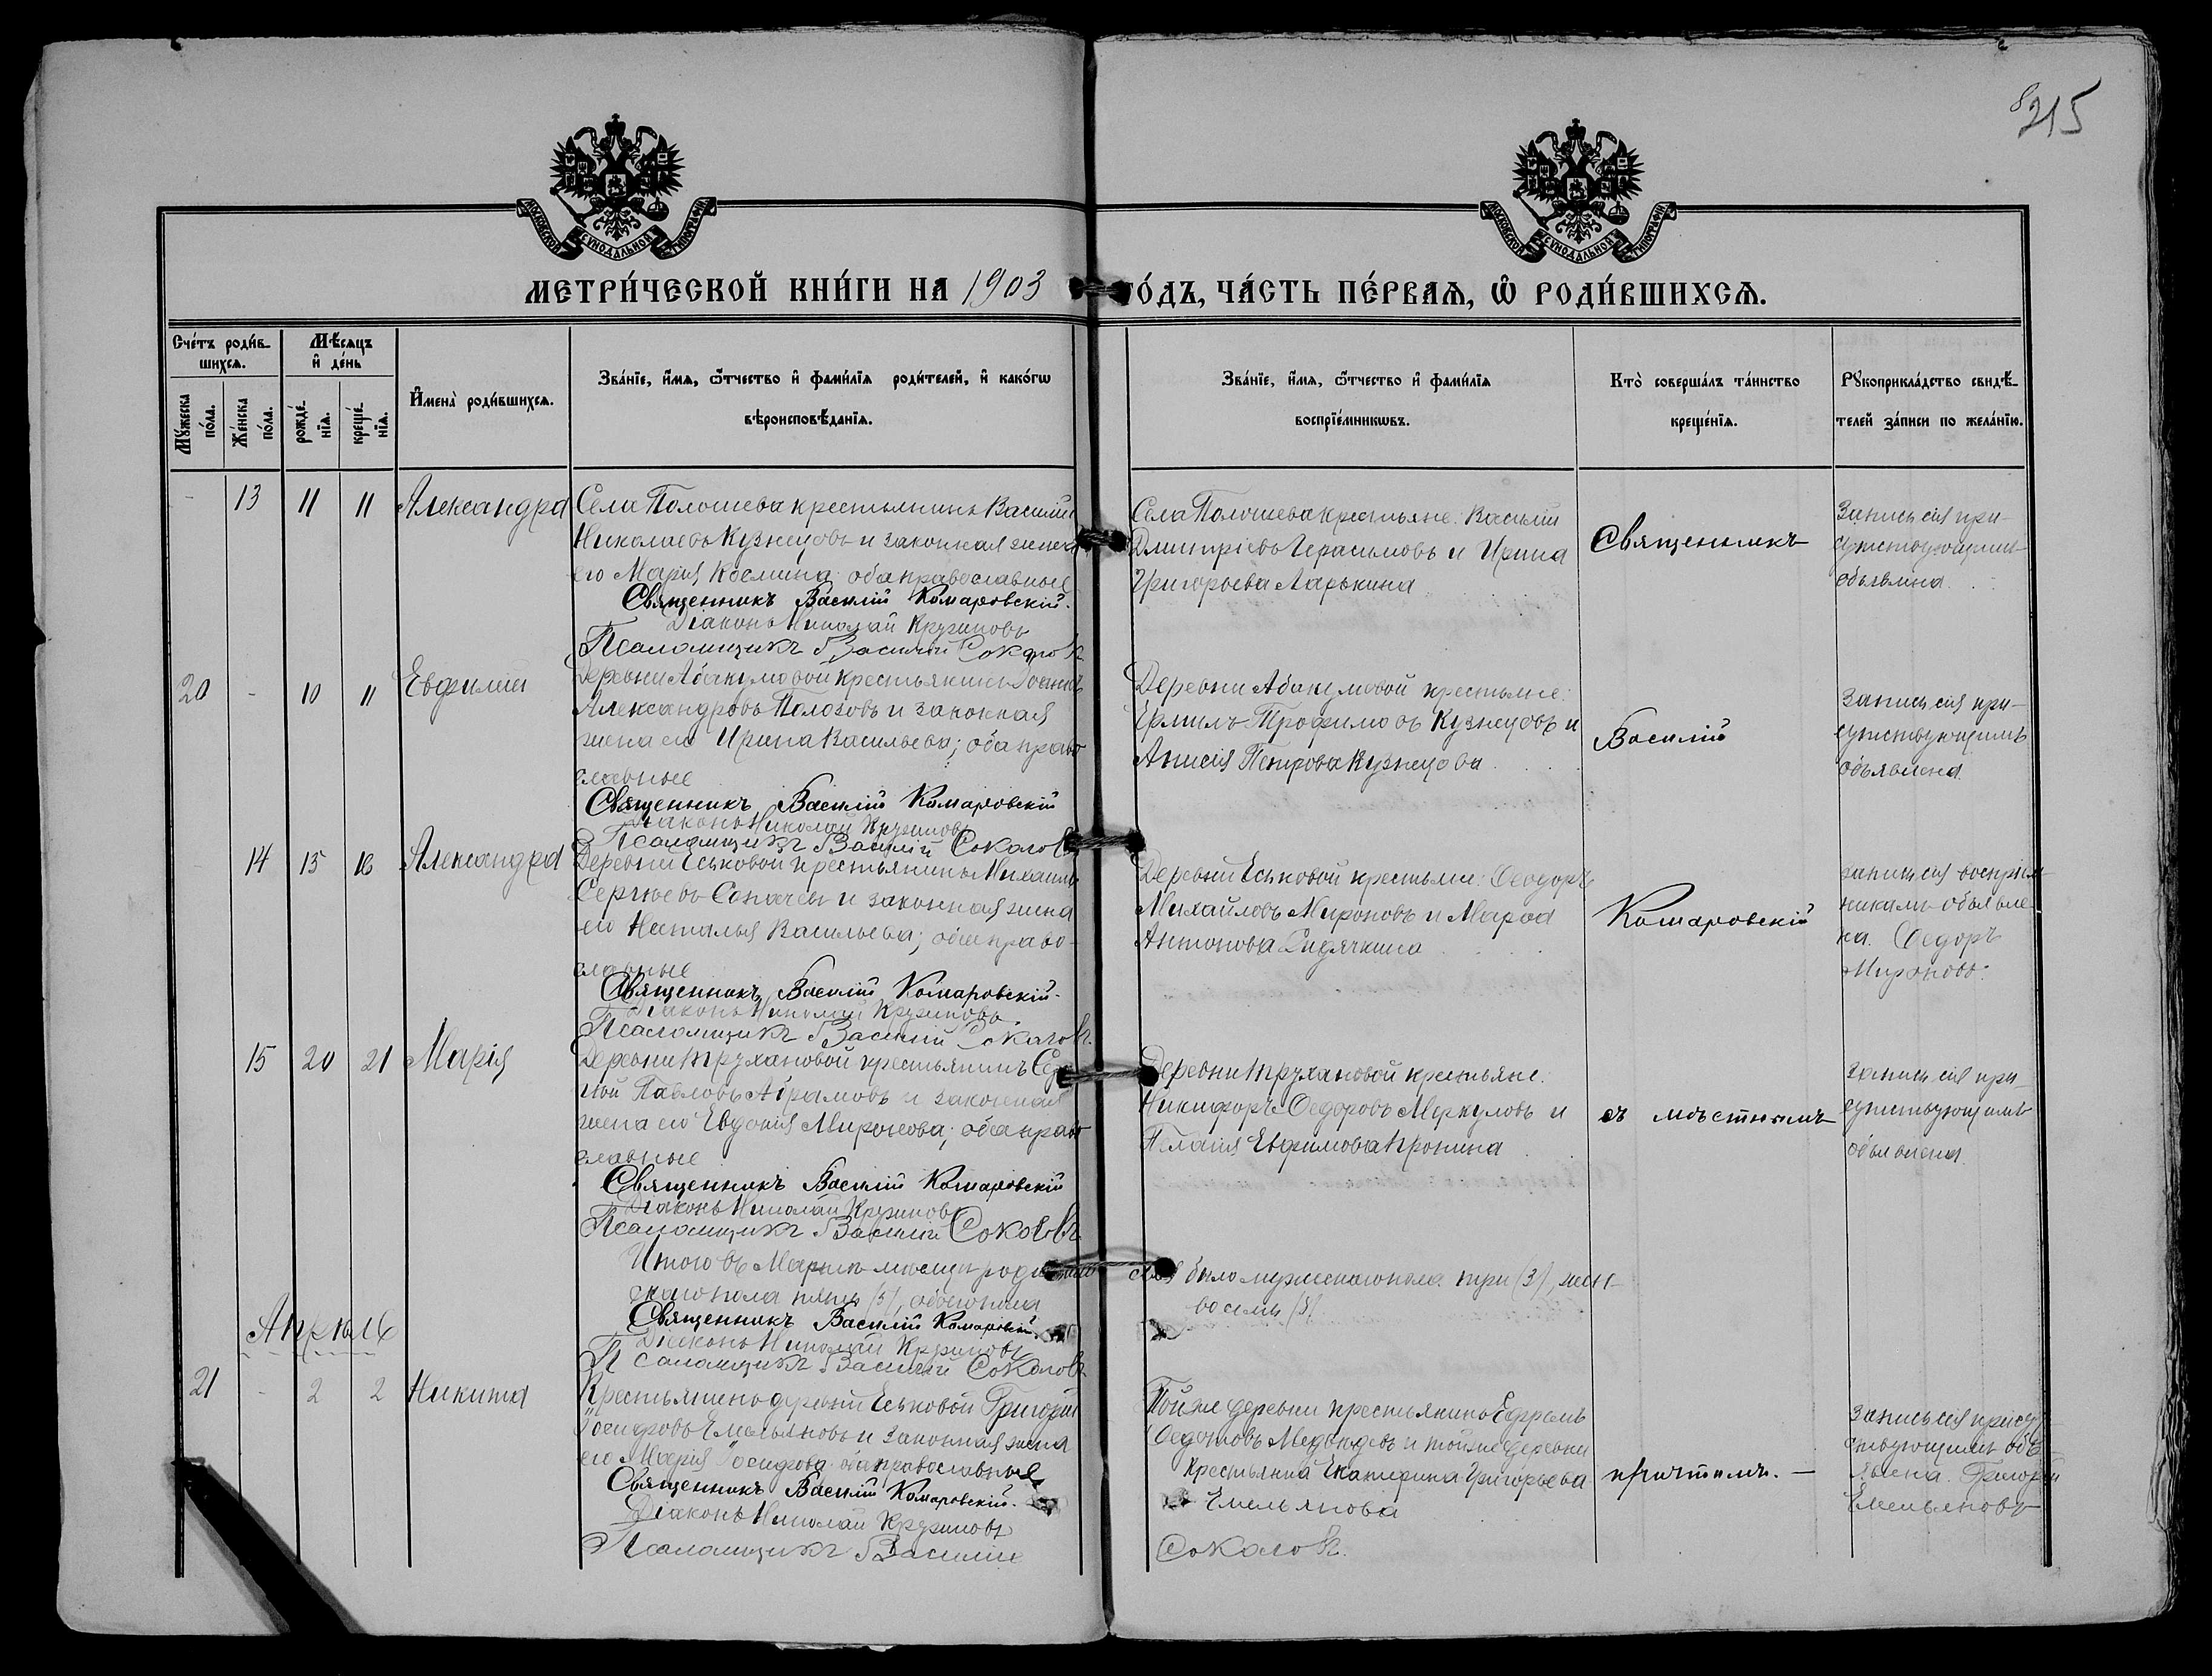 215
МОСКОВСКОЙ СѴНОДАЛЬНОЙ ТИПОГРАФІИ
МОСКОВСКОЙ СѴНОДАЛЬНОЙ ТИПОГРАФІИ
МЕТРИ́ЧЕСКОЙ КНИ́ГИ НА 1903 ГО́ДЪ, ЧА́СТЬ ПЕ́РВАѦ, Ѽ РОДИ́ВШИХСѦ.
Сче́тъ роди́в-
шихсѧ.
Мꙋ́жеска по́ла.
Же́нска по́ла.
Мѣ́сѧцъ
и҆ де́нь
рожде́-
нїѧ.
креще́-
нїѧ.
И҆мена̀ роди́вшихсѧ.
Зва́нїе, и҆́мѧ, ѻ҆́тчество и҆ фами́лїѧ роди́телей, и҆ како́гѡ
вѣроисповѣ́данїѧ.
Зва́нїе, и҆́мѧ, ѻ҆́тчество и҆ фами́лїѧ
воспрїе́мникѡвъ.
Кто̀ соверша́лъ та́инство
креще́нїѧ.
Рꙋкоприкла́дство свидѣ́-
телей за́писи по жела́нїю.
- 13 11 11 Александра
Села Полошева крестьянинъ Василій
Николаевъ Кузнецовъ и законная жена
его Марія Косьмина: оба православные
Священникъ Василій Комаровскій.
Діаконъ Николай Кружиновъ
Псаломщикъ Василій Соколовъ
Села Полошева крестьяне: Василій
Дмитріевъ Герасимовъ и Ирина
Григорьева Ларькина
Священникъ
Запись сія при-
сутствующимъ
объявлена.
20 - 10 11 Евфимій
Деревни Абакумовой крестьянинъ Іоаннъ
Александровъ Полозовъ и законная
жена его Ирина Васильева; оба право
славные
Священникъ Василій Комаровскій
Діаконъ Николай Кружиновъ
Псаломщикъ Василій Соколовъ
Деревни Абакумовой крестьяне:
Ермилъ Трофимовъ Кузнецовъ и
Анисія Петрова Кузнецова
Василій
Запись сія при-
сутствующимъ
объявлена.
14 15 16 Александра
Деревни Еськовой крестьянинъ Михаилъ
Сергѣевъ и законная жена
его Наталья Васильева; оба право-
славные
Священникъ Василій Комаровскій.
Діаконъ Николай Кружиновъ
Псаломщикъ Василій Соколовъ.
Деревни Еськовой крестьяне: Ѳеодоръ
Михайловъ Мироновъ и
Антонова
Комаровскій
запись сія воспріем-
никамъ объявле-
на. Ѳедоръ
Мироновъ.
15 20 21 Марія
Деревни Трухановой крестьянинъ
Павловъ Абрамовъ и законная
жена его Евдокія Миронова; оба право
славные
Священникъ Василій Комаровскій
Діаконъ Николай Кружиновъ
Псаломщикъ Василій Соколовъ
Деревни Трухановой крестьяне:
Никифоръ Ѳедоровъ Меркуловъ и
Пелагія Евфимова Кронина
съ мѣстнымъ
запись сія при-
сутствующимъ
объявлена.
Итого въ Мартѣ мѣсяцѣ было мужескаго пола три (3), жен-
скаго пола пять (5), обоего пола восемь (8).
Священникъ Василій Комаровскій.
Діаконъ Николай Кружиновъ
Псаломщикъ Василій Соколовъ
Апрѣль
21 - 2 2 Никита
Крестьянинъ деревни Еськовой Григорій
Іосифовъ Емельяновъ и законная жена
его Марія Іосифова: оба православные
Священникъ Василій Комаровскій.
Діаконъ Николай Кружиновъ
Псаломщикъ Василій Соколовъ.
Той же деревни крестьянинъ Ефремъ
Ѳедотовъ Медвѣдевъ и той же деревни
крестьянка Екатерина Григорьева
Емельянова
причтомъ. —
Запись сія присут-
ствующимъ объ-
явлена. Григорій
Емельяновъ